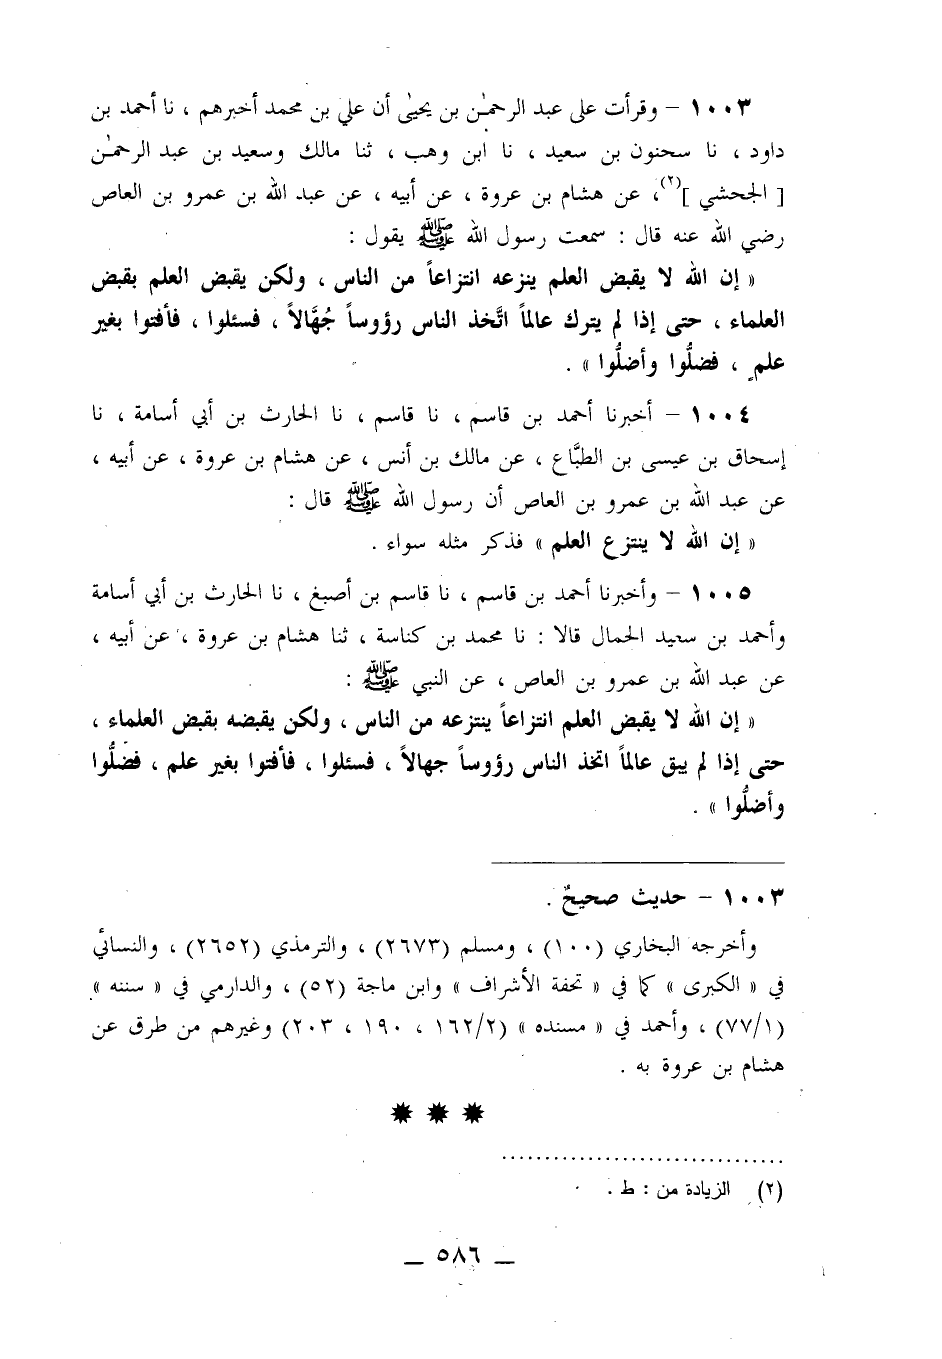 ١٠٠٣ – وقرأت على عبد الرحمٰن بن يحيىٰ أن علي بن محمد أخبرهم ، نا أحمد بن
داود ، نا سحنون بن سعيد ، نا ابن وهب ، ثنا مالك وسعيد بن عبد الرحمـٰن
[ الجحشي ](٢)، عن هشام بن عروة ، عن أبيه ، عن عبد الله بن عمرو بن العاص
رضي الله عنه قال : سمعت رسول الله ﷺ يقول :
« إن الله لا يقبض العلم ينزعه انتزاعاً من الناس ، ولكن يقبض العلم بقبض
العلماء ، حتى إذا لم يترك عالماً اتَّخذ الناس رؤوساً جُهَّالاً ، فسئلوا ، فأفتوا بغير
علمٍ ، فضلُّوا وأضلُّوا » .
١٠٠٤ – أخبرنا أحمد بن قاسم ، نا قاسم ، نا الحارث بن أبي أسامة ، نا
إسحاق بن عيسى بن الطبَّاع ، عن مالك بن أنس ، عن هشام بن عروة ، عن أبيه ،
عن عبد الله بن عمرو بن العاص أن رسول الله ﷺ قال :
« إن الله لا ينتزع العلم » فذكر مثله سواء .
١٠٠٥ – وأخبرنا أحمد بن قاسم ، نا قاسم بن أصبغ ، نا الحارث بن أبي أسامة
وأحمد بن سعيد الجمال قالا : نا محمد بن كناسة ، ثنا هشام بن عروة ، عن أبيه ،
عن عبد الله بن عمرو بن العاص ، عن النبي ﷺ :
« إن الله لا يقبض العلم انتزاعاً ينتزعه من الناس ، ولكن يقبضه بقبض العلماء ،
حتى إذا لم يبق عالماً اتخذ الناس رؤوساً جهالاً ، فسئلوا ، فأفتوا بغير علم ، فضلُّوا
وأضلُّوا » .
١٠٠٣ – حديث صحيحٌ .
وأخرجه البخاري (١٠٠) ، ومسلم (٢٦٧٣) ، والترمذي (٢٦٥٢) ، والنسائي
في « الكبرى » كما في « تحفة الأشراف » وابن ماجة (٥٢) ، والدارمي في « سننه »
(٧٧/١) ، وأحمد في « مسنده » (١٦٢/٢ ، ١٩٠ ، ٢٠٣) وغيرهم من طرق عن
هشام بن عروة به .
(٢) الزيادة من : ط .
ـ ٥٨٦ ـ